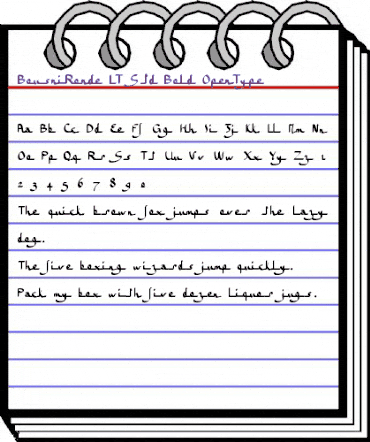 BousniRonde LT Std Bold OpenType
Aa Bb Cc Dd Ee Ff Gg Hh Ii Jj Kk Ll Mm Nn
Oo Pp Qq Rr Ss Tt Uu Vv Ww Xx Yy Zz 1
2 3 4 5 6 7 8 9 0
The quick brown fox jumps over the lazy
dog.
The five boxing wizards jump quickly.
Pack my box with five dozen liquor jugs.